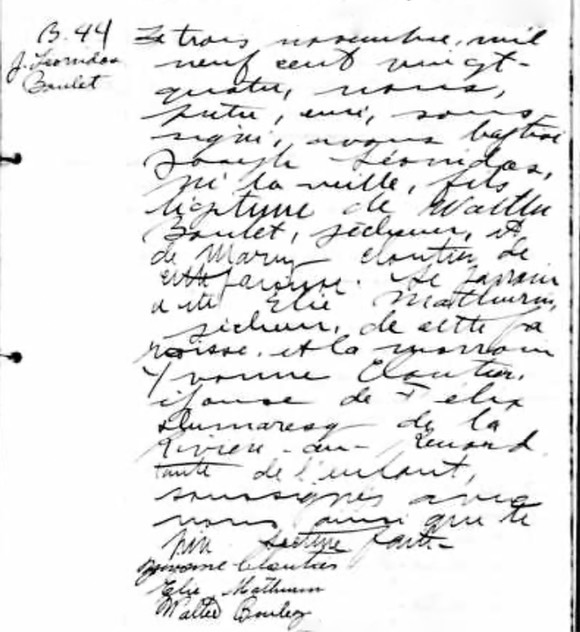 B. 44
J. Leonidas
Boulet
Le trois novembre, mil
neuf cent vingt-
quatre, nous,
prêtre, curé, sous
signé, avons baptisé
Joseph Léonidas,
né la veille, fils
légitime de Walter
Boulet, pêcheur, et
de Mary Cloutier de
cette paroisse. Le parrain
a été Elie Mathurin,
pêcheur, de cette pa
roisse. et la marraine
Yvonne Cloutier,
épouse de Félix
Dumaresq de la
Rivière-au-Renard
tante de l'enfant,
soussignés avec
nous ainsi que le
père lecture faite
Yvonne Cloutier
Elie Mathurin
Walter Boulet